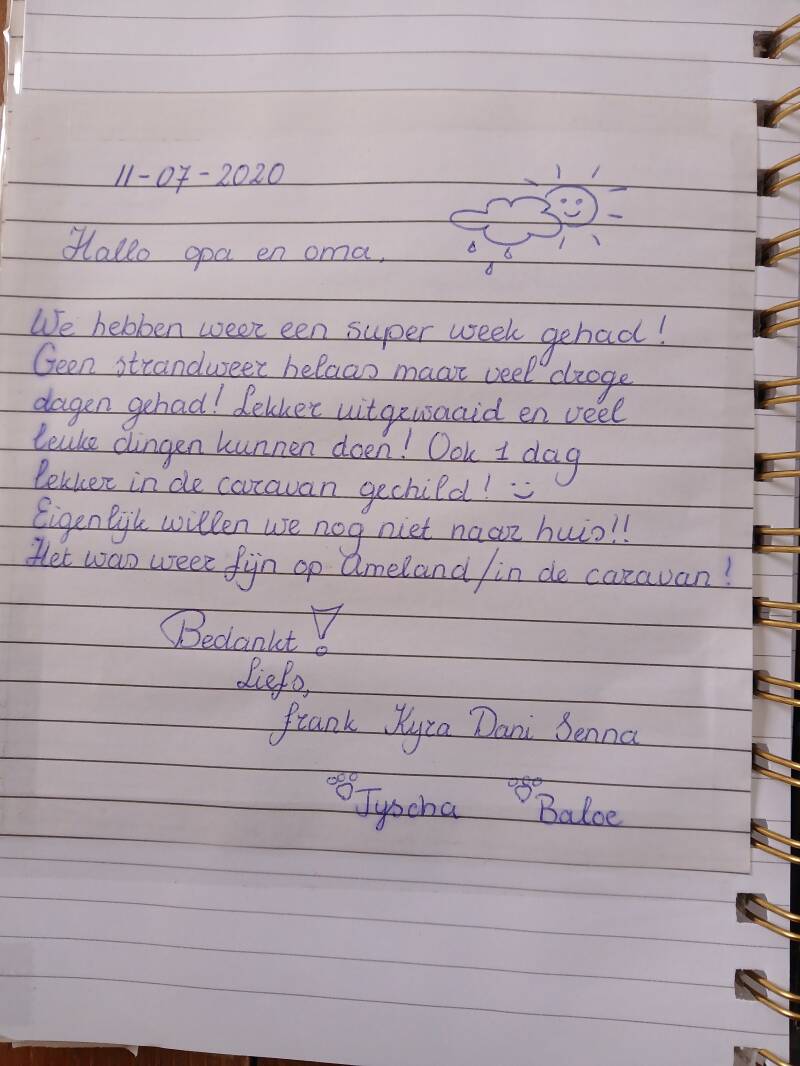 11-07-2020
Hallo opa en oma,
We hebben weer een super week gehad!
Geen strandweer helaas maar veel droge
dagen gehad! Lekker uitgewaaid en veel
leuke dingen kunnen doen! Ook 1 dag
lekker in de caravan gechild! :)
Eigenlijk willen we nog niet naar huis!!
Het was weer fijn op Ameland/in de caravan!
Bedankt!
Liefs,
Frank Kyra Dani Senna
Tyscha Baloe